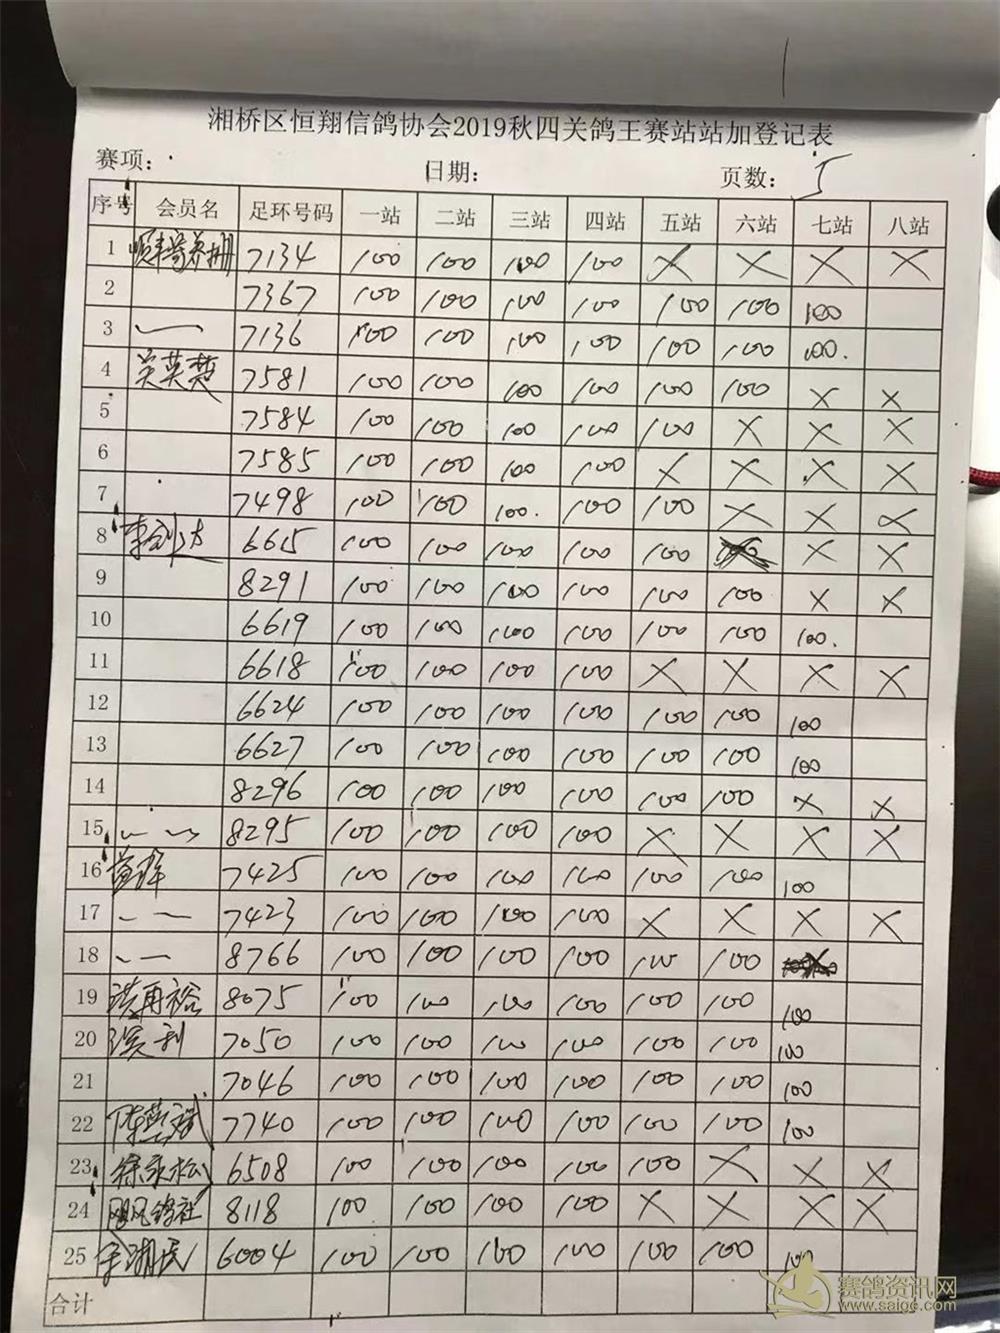 湘桥区恒翔信鸽协会2019秋四关鸽王赛站站加登记表
赛项: 日期: 页数: 5
序号 会员名 足环号码 一站 二站 三站 四站 五站 六站 七站 八站
1 7134 100 100 100 100 X X X X
2 7367 100 100 100 100 100 100 100
3 7136 100 100 100 100 100 100 100.
4 关英楚 7581 100 100 100 100 100 100 X X
5 7584 100 100 100 100 100 X X X
6 7585 100 100 100 100 X X X X
7 7498 100 100 100. 100 100 X X X
8 6615 100 100 100 100 100 X X
9 8291 100 100 100 100 100 100 X X
10 6619 100 100 100 100 100 100 100.
11 6618 100 100 100 100 X X X X
12 6624 100 100 100 100 100 100 100
13 6627 100 100 100 100 100 100 100
14 8296 100 100 100 100 100 100 X X
15 8295 100 100 100 100 X X X X
16 7425 100 100 100 100 100 100 100
17 7423 100 100 100 100 X X X X
18 8766 100 100 100 100 100 100
19 洪再裕 8075 100 100 100 100 100 100 100
20 7050 100 100 100 100 100 100 100
21 7046 100 100 100 100 100 100 100
22 7740 100 100 100 100 100 100 100
23 徐永松 6508 100 100 100 100 100 X X X
24 飓风鸽社 8118 100 100 100 100 X X X X
25 6004 100 100 100 100 100 100 100
合计
赛鸽资讯网
www.saige.com